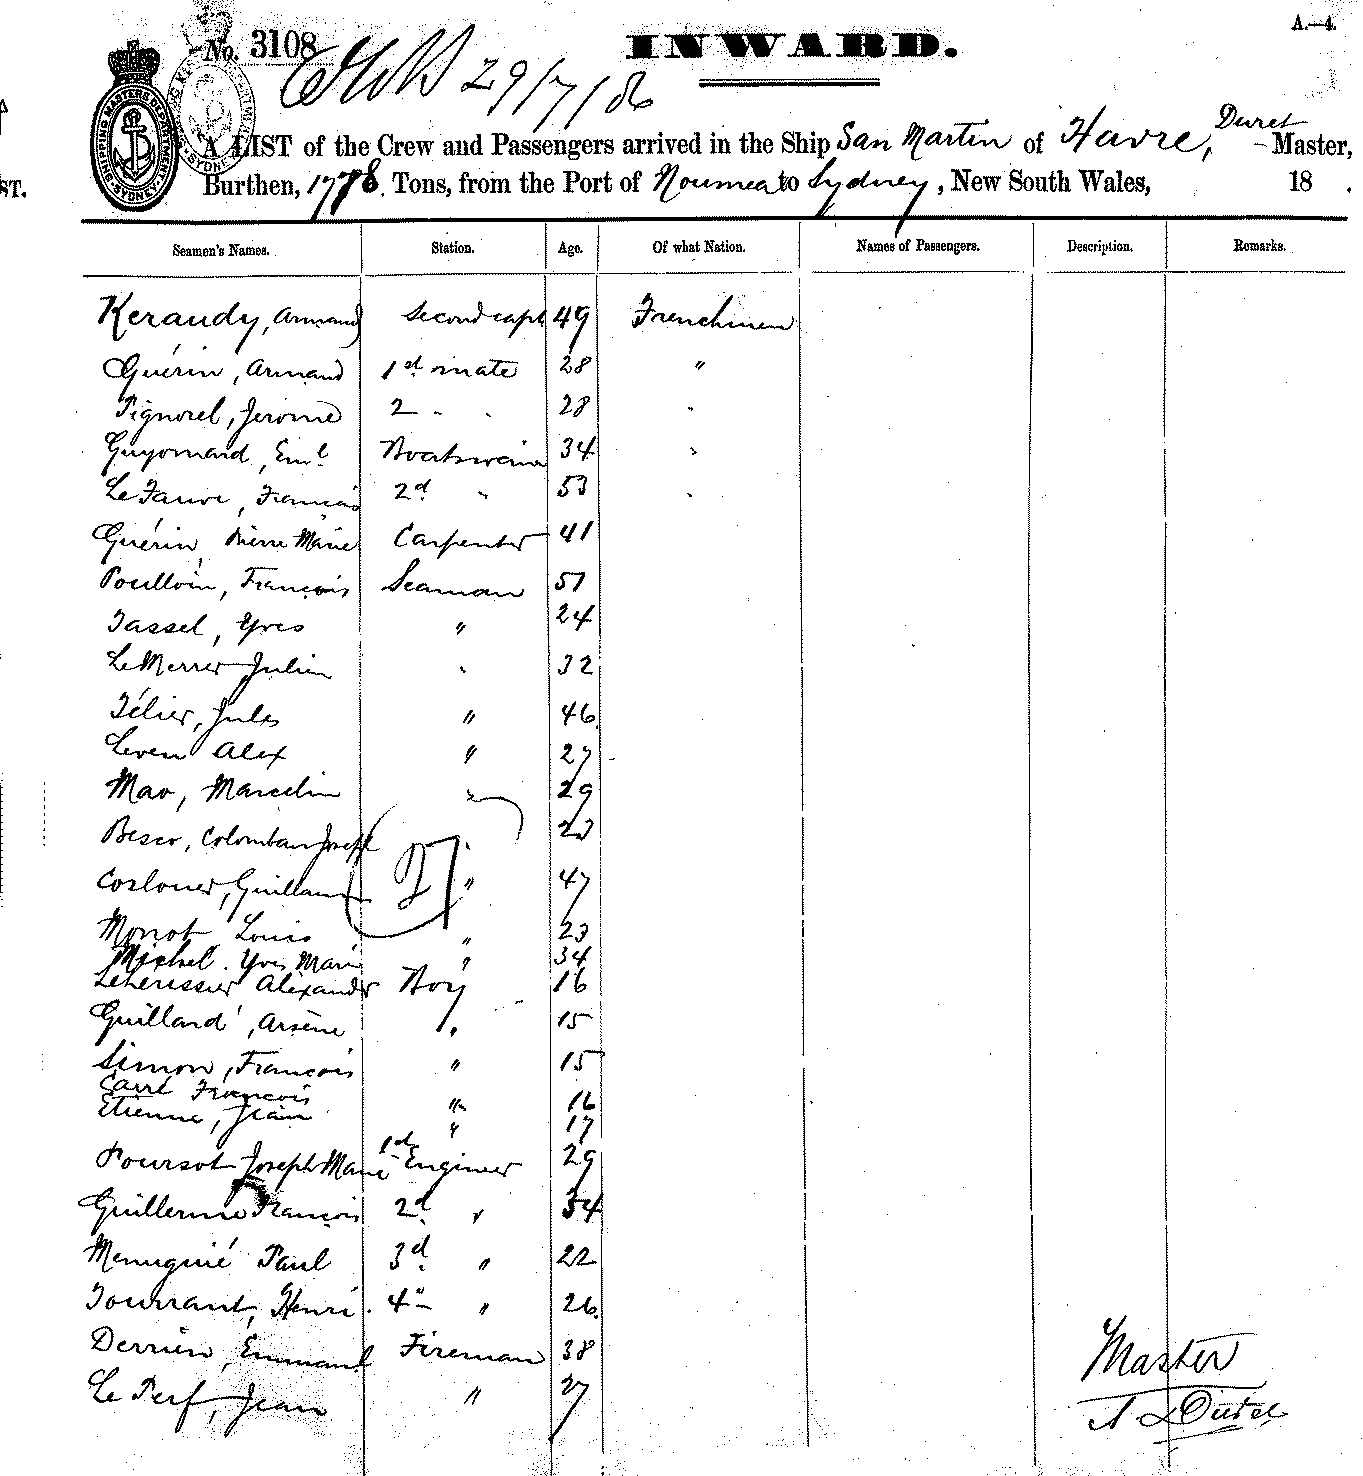 A.—4.
No. 3108
INWARD.
29/7/86
A LIST of the Crew and Passengers arrived in the Ship San Martin of Havre, Duret Master,
Burthen, 1778. Tons, from the Port of Noumea to Sydney, New South Wales, 18 .
ST.
Seamen's Names. Station. Age. Of what Nation. Names of Passengers. Description. Remarks.
Keraudy, Armand Second capt 49 Frenchmen
Guérin, Armand 1st mate 28 "
Pignorel, Jerome 2 " " 28 "
Guyomard, Eml 34 "
Boatswain
Le Fauve, François 2d " 53 "
Guérin, Pierre Marie Carpenter 41
Poulloin, François Seaman 51
Tassel, Yves " 24
Le Merrer Julien " 32
Télier, Jules " 46
Leven Alex " 27
Mao, Marcelin " 29
Besco, Colomban Joseph " 23
Cozlouer, Guillaume " 47
Monot Louis " 23
Michel. Yves Marie " 34
Leherissier Alexander Boy 16
Guillard, Arsène " 15
Simon, François " 15
Carré François " 16
Etienne, Jean " 17
Poursot Joseph Marie 1st Engineer 29
Guillerme François 2d " 34
Menuguié Paul 3d " 22
Tourrant, Henri. 4th " 26
Derrien, Emmanl Fireman 38
Le Perf, Jean " 27
Master